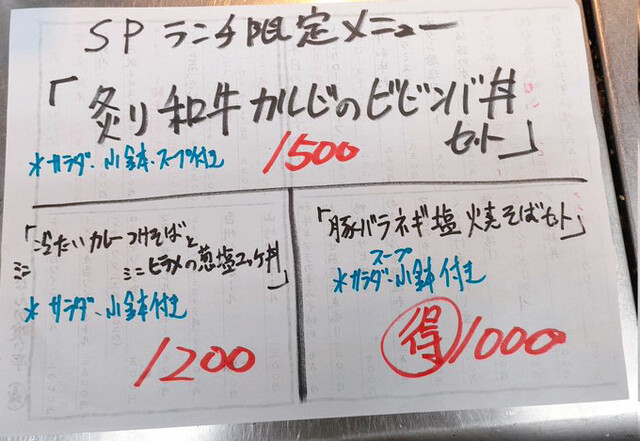 SPランチ限定メニュー
「炙り和牛カルビのビビンバ丼
セット」
*サラダ・小鉢・スープ付き
1500
「冷たいカレーつけそばと
ミニ
ミニヒラメの葱塩ユッケ丼」
*サラダ・小鉢付き
1200
「豚バラネギ塩焼そばセット」
スープ
*サラダ・小鉢付き
得 1000